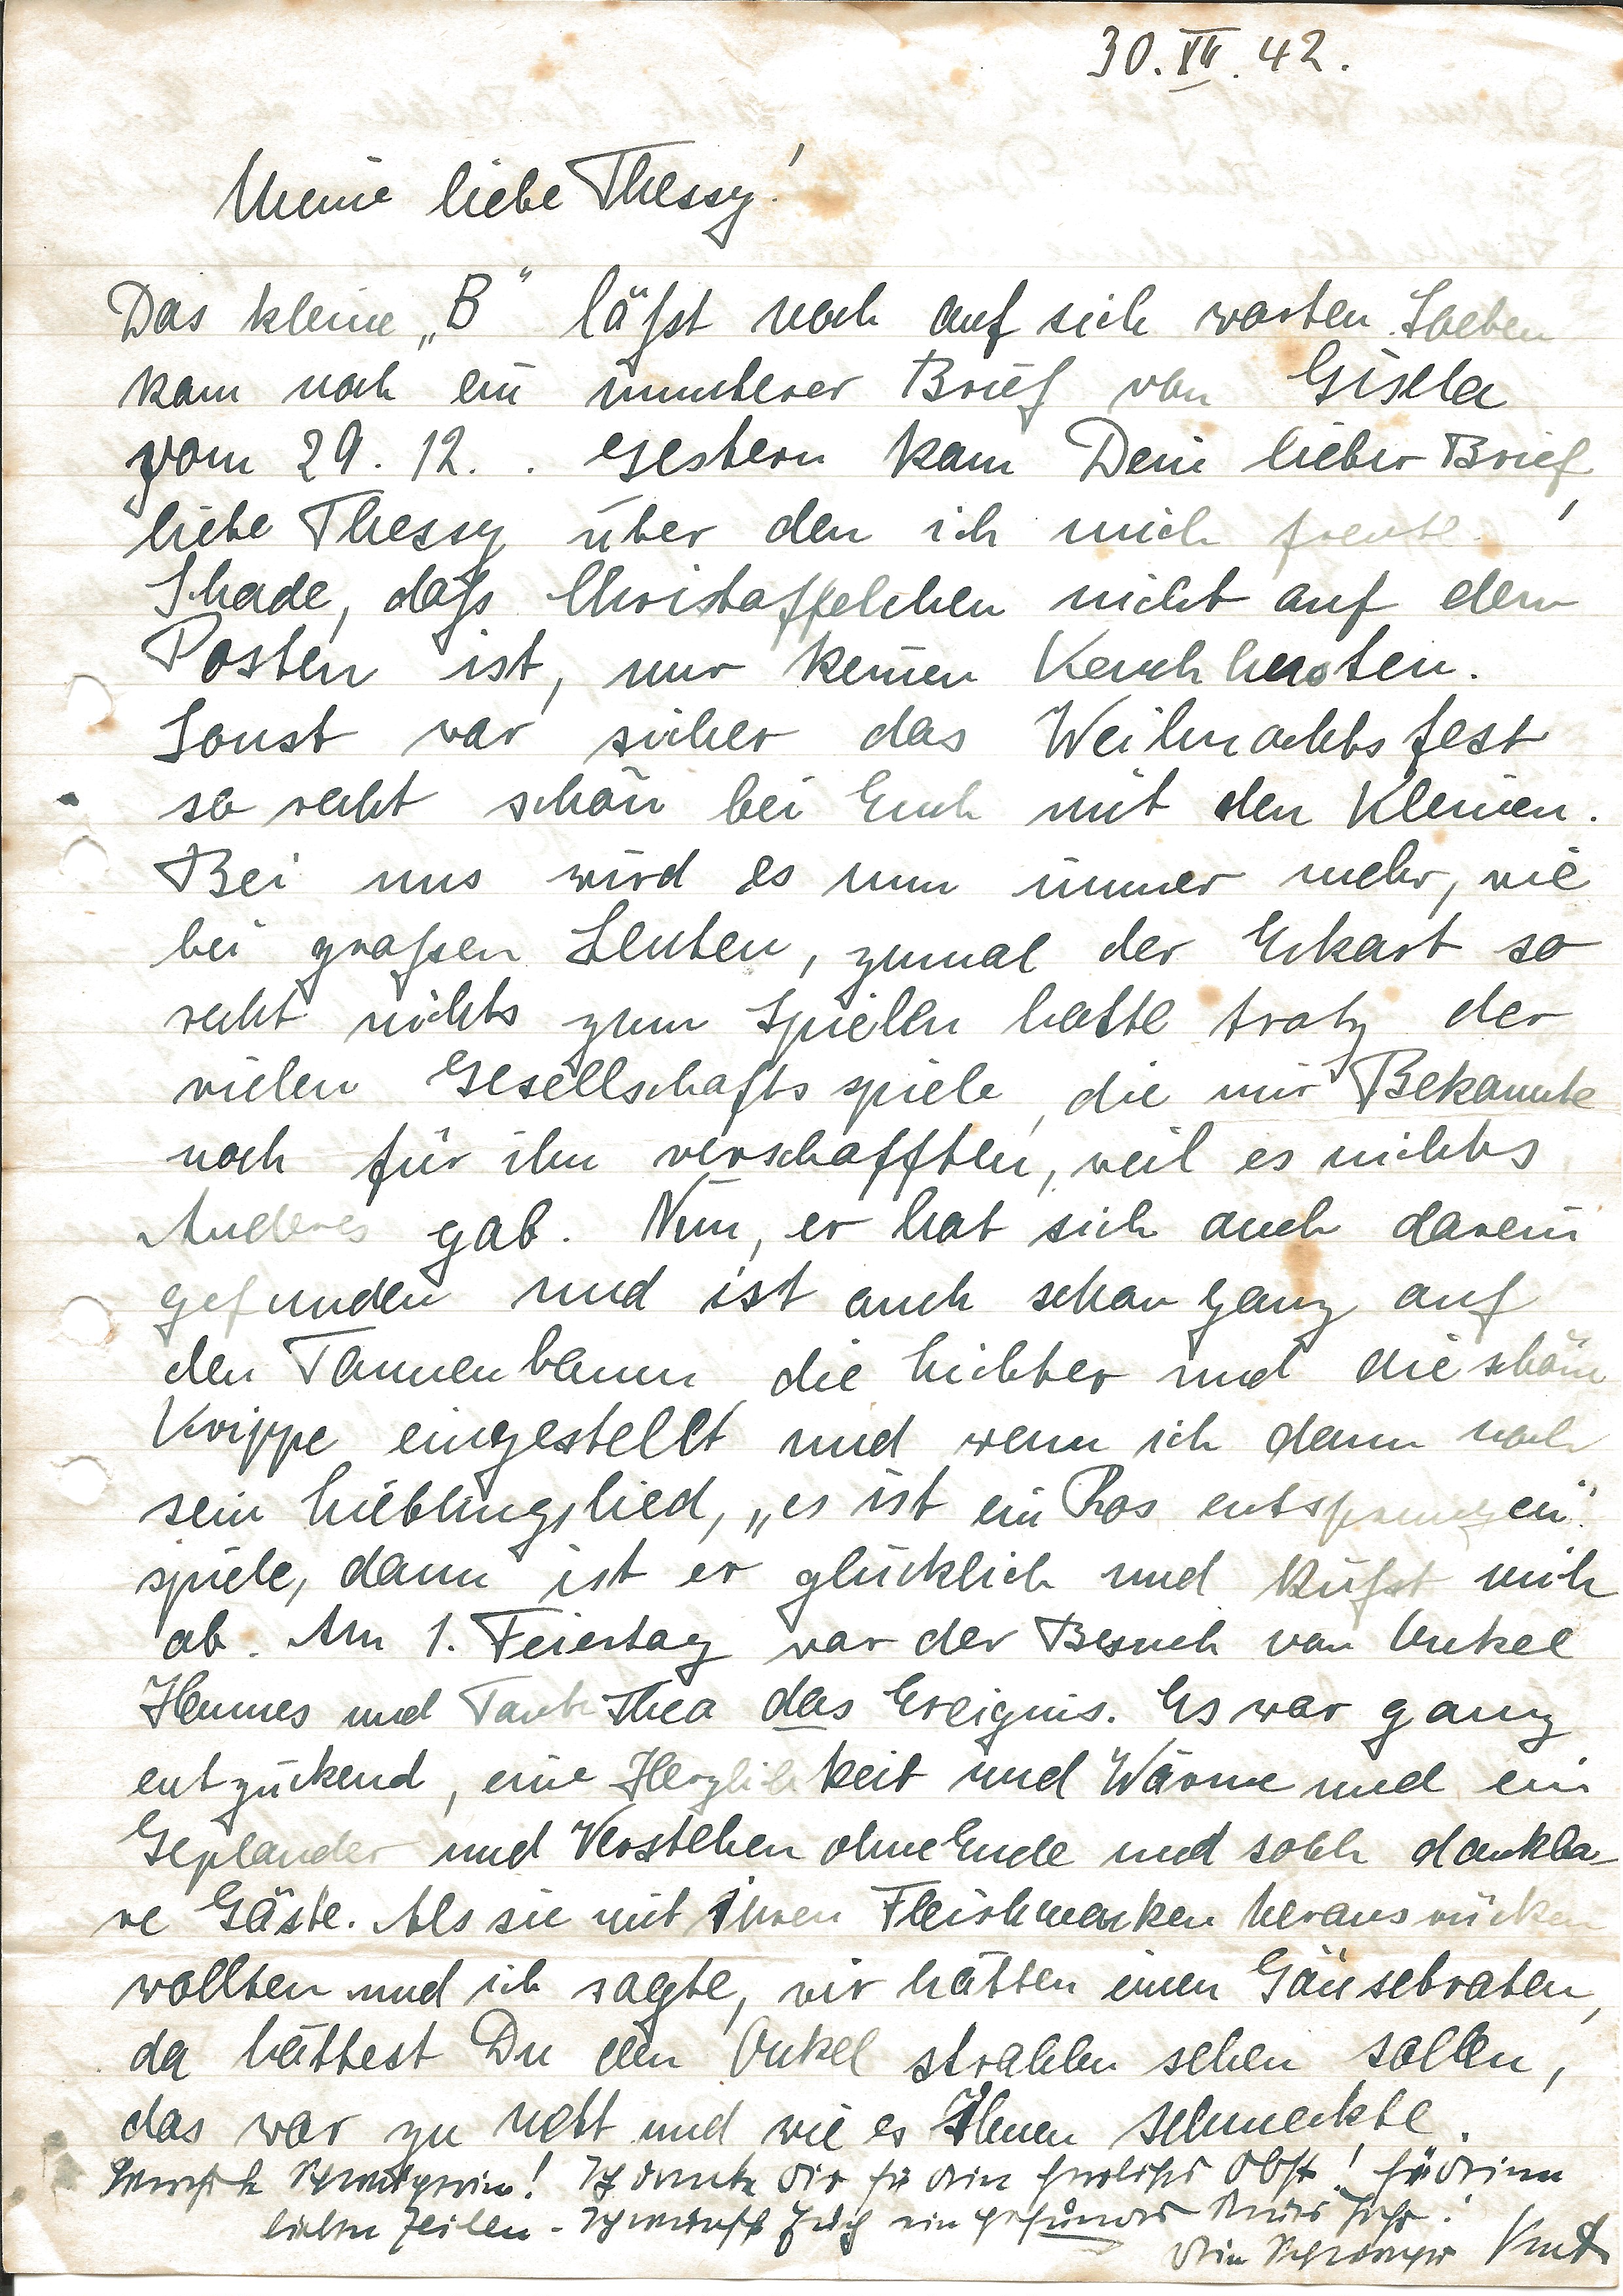 30. XII. 42.
Meine liebe Thessy!
Das kleine „B" läßt noch auf sich warten. Soeben
kam noch ein munterer Brief von Gisela
vom 29. 12. . Gestern kam Dein lieber Brief,
liebe Thessy über den ich mich freute.
Schade, daß Christoffelchen nicht auf dem
Posten ist, nur keinen Keuchhusten.
Sonst war sicher das Weihnachtsfest
so recht schön bei Euch mit den Kleinen.
Bei uns wird es nun immer mehr, wie
bei großen Leuten, zumal der Eckart so
recht nichts zum Spielen hatte trotz der
vielen Gesellschaftsspiele, die mir Bekannte
noch für ihn verschafften, weil es nichts
Anderes gab. Nun, er hat sich auch darein
gefunden und ist auch schon ganz auf
den Tannenbaum die Lichter und die schöne
Krippe eingestellt und wenn ich dann noch
sein Lieblingslied, „es ist ein Ros entsprungen"
spiele, dann ist er glücklich und küßt mich
ab. Am 1. Feiertag war der Besuch von Onkel
Hannes und Tante Thea das Ereignis. Es war ganz
entzückend, eine Herzlichkeit und Wärme und ein
Geplauder und Verstehen ohne Ende und solch dankba-
re Gäste. Als sie mit ihren Fleischmarken herausrücken
wollten und ich sagte, wir hätten einen Gänsebraten,
da hättest Du den Onkel strahlen sehen sollen,
das war zu nett und wie es Ihnen schmeckte.
Schwägerin! Ich danke Dir für Dein herrliches Obst! für Deine
lieben Zeilen. - Ich wünsche Euch ein gesundes Neues Jahr!
Dein Schwager Kurt